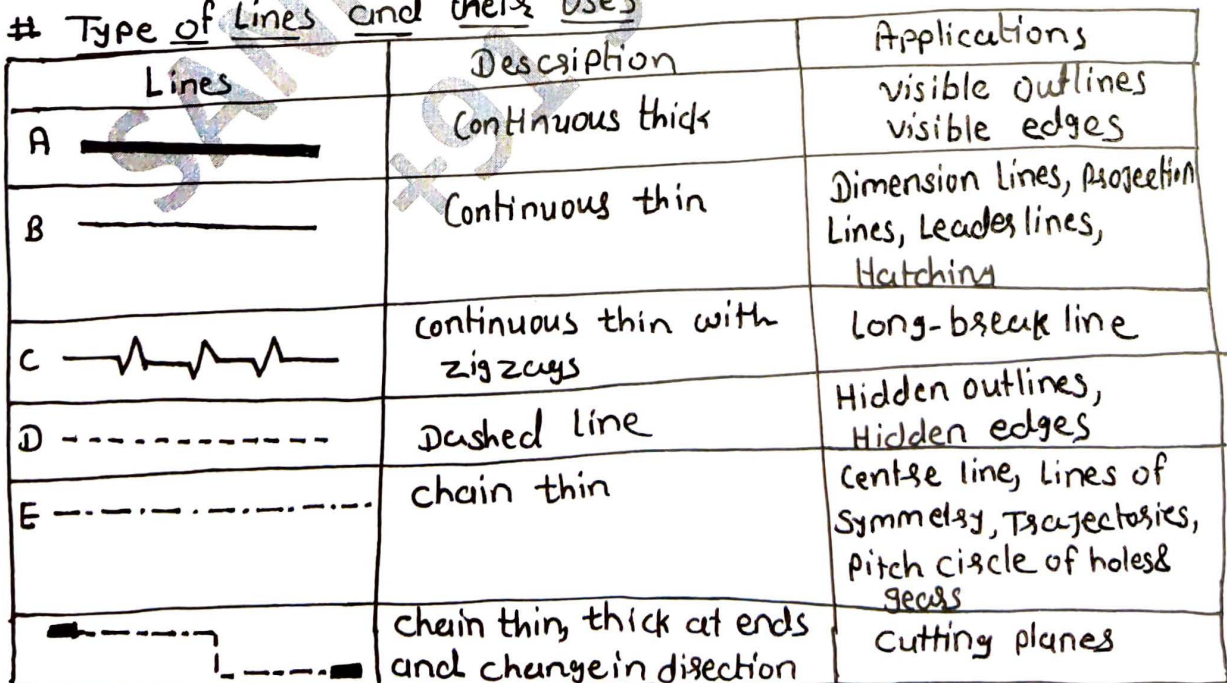 # Type of Lines and their Uses
Lines
Description
Applications
A
Continuous thick
visible outlines
visible edges
B
Continuous thin
Dimension Lines, projection
Lines, Leader lines,
Hatching
C
continuous thin with
zigzags
Long-break line
D
Dashed line
Hidden outlines,
Hidden edges
E
chain thin
Centre line, Lines of
Symmetry, Trajectories,
Pitch circle of holes &
gears
chain thin, thick at ends
and change in direction
Cutting planes
SAN
+91 9